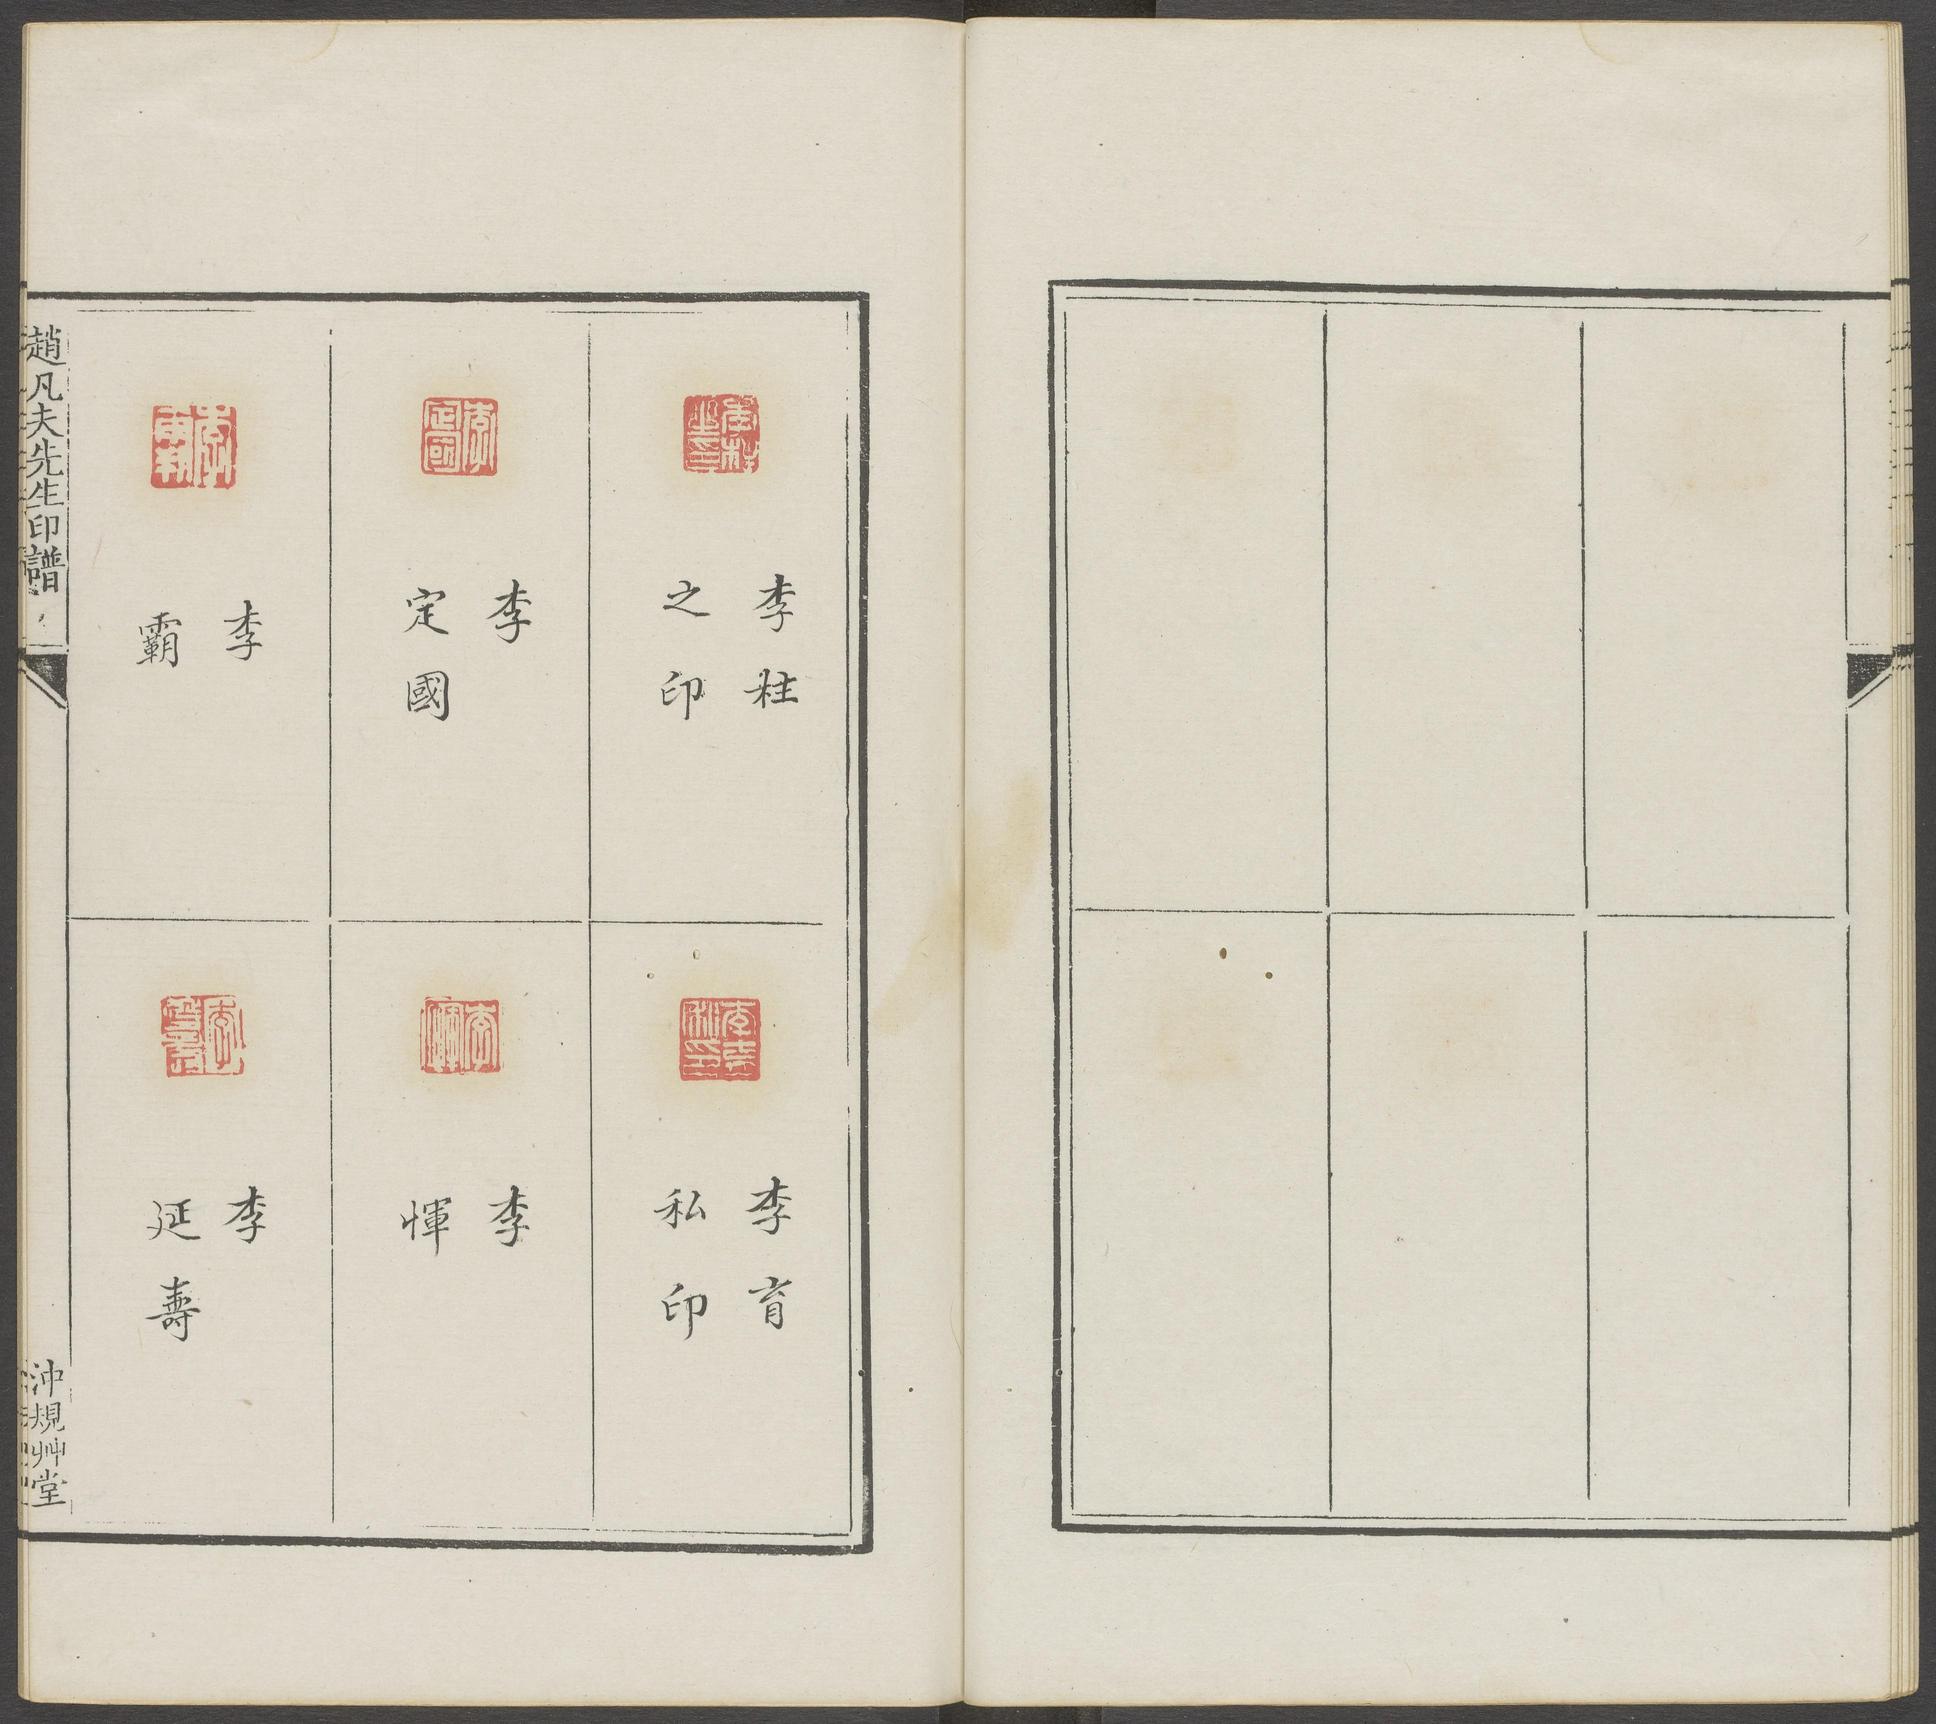 李柱
之印
李
定國
李
霸
李育
私印
李
惲
李
延壽
趙凡夫先生印譜
沖規艸堂